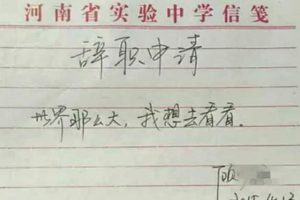 河南省实验中学信笺
辞职申请
世界那么大,我想去看看.
顾